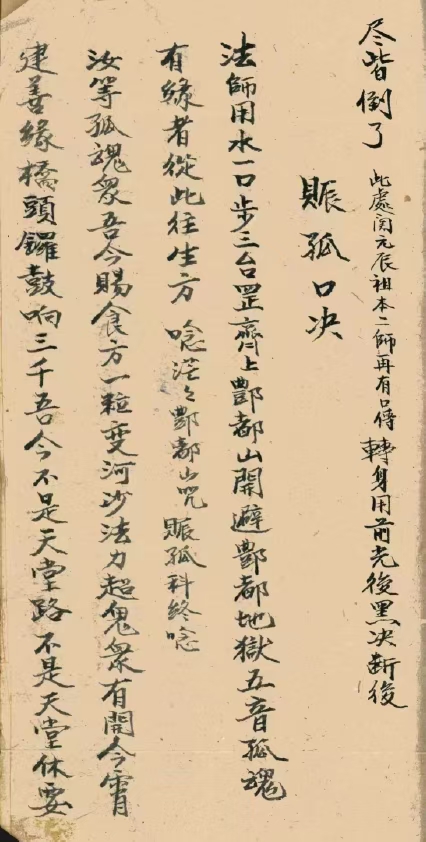 尽皆倒了 此處関元辰祖本二師再有口傳轉身用前光後黑决斷後
賑孤口决
法師用水一口步三台罡齊上酆都山開避酆都地獄五音孤魂
有緣者從此往生方 唸茫々酆都山咒 賑孤科終唸
汝等孤魂衆吾今賜食方一粒变河沙法力超鬼衆有開今宵
建善緣橋頭鑼鼓响三千吾今不是天堂路不是天堂休要